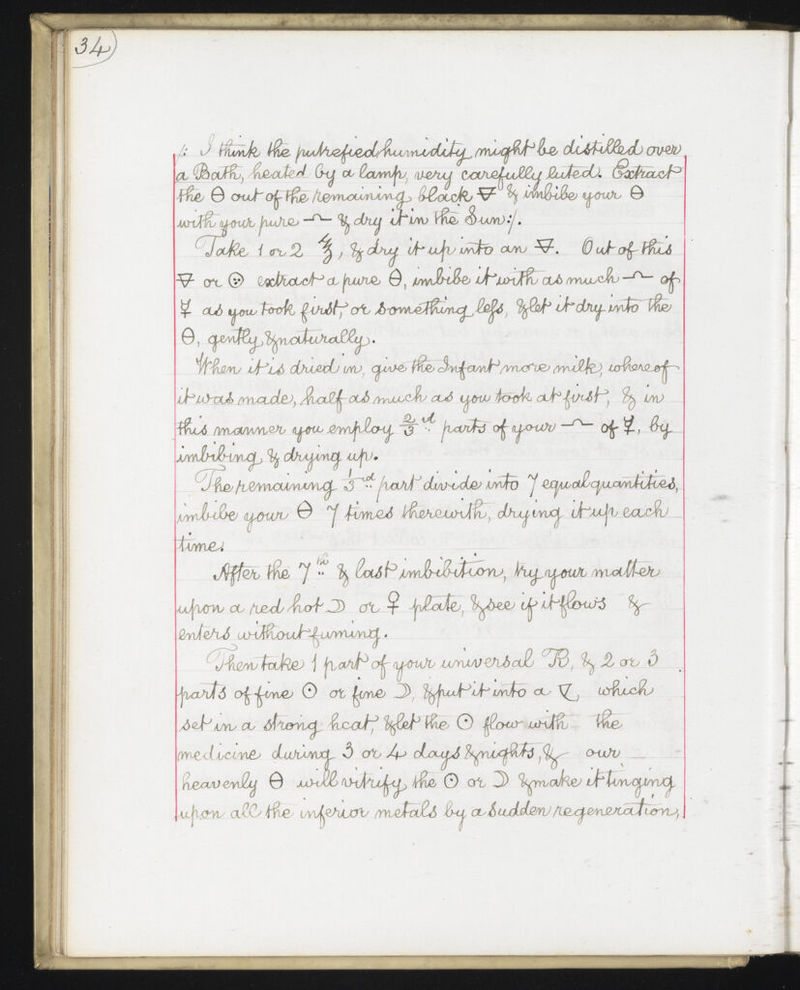 34
/: I think the putrefied humidity might be distilled over
a Bath, heated by a lamp, very carefully luted. Extract
the 🜔 out of the remaining black 🜃 & imbibe your 🜔
with your pure & dry it in the Sun :/.
Take 1 or 2 ℥, & dry it up into an 🜃. Out of this
🜃 or extract a pure 🜔, imbibe it with as much of
as you took first, or something less, & let it dry into the
🜔, gently & naturally.
When it is dried in, give the Infant more milk, whereof
it was made, half as much as you took at first, & in
this manner you employ 2/3rd parts of your of, by
imbibing & drying up.
The remaining 1/3rd part divide into 7 equal quantities,
imbibe your 🜔 7 times therewith, drying it up each
time.
After the 7th & last imbibition, try your matter
upon a red hot ☽ or ♀ plate, & see if it flows &
enters without fuming.
Then take 1 part of your universal, & 2 or 3
parts of fine ☉ or fine ☽, & put it into a which
set in a strong heat, & let the ☉ flow with the
medicine during 3 or 4 days & nights, & our
heavenly 🜔 will vitrify the ☉ or ☽ & make it tinging
upon all the inferior metals by a sudden regeneration,